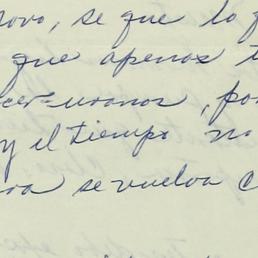 ovo, se que lo q
que apenas t
cer-uranos, por
y el tiempo no
ra se vuelva c